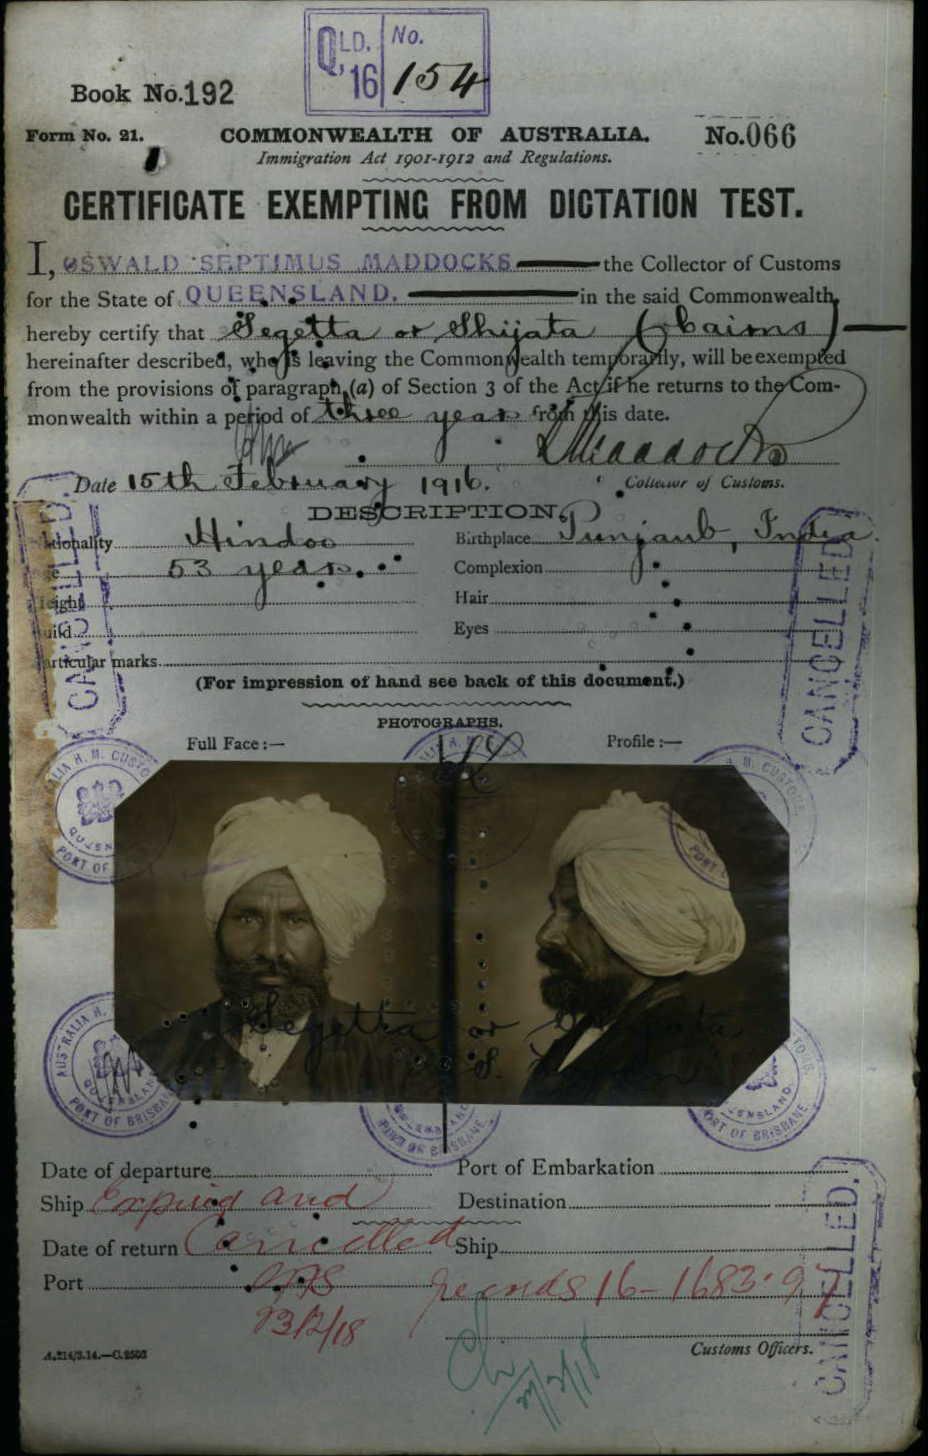 QLD. 16 No. 154
Book No. 192
Form No. 21. COMMONWEALTH OF AUSTRALIA. No. 066
Immigration Act 1901-1912 and Regulations.
CERTIFICATE EXEMPTING FROM DICTATION TEST.
I, OSWALD SEPTIMUS MADDOCKS the Collector of Customs
for the State of QUEENSLAND. in the said Commonwealth,
hereby certify that Segetta or Shijata (Cairns)
hereinafter described, who is leaving the Commonwealth temporarily, will be exempted
from the provisions of paragraph (a) of Section 3 of the Act if he returns to the Com-
monwealth within a period of three years from this date.
Date 15th February 1916. Collector of Customs.
DESCRIPTION.
Nationality Hindoo Birthplace Punjaub, India.
53 years. Complexion
Height Hair
Build Eyes
Particular marks
(For impression of hand see back of this document.)
PHOTOGRAPHS.
Full Face :— Profile :—
CANCELLED.
CANCELLED.
Segetta or Shijata
AUSTRALIA H. M. CUSTOMS QUEENSLAND PORT OF BRISBANE
Date of departure Port of Embarkation
Ship Expired and Destination
Date of return Cancelled Ship
Port
16-1683.97
CANCELLED.
A.214/3.14.—C.2503 Customs Officers.